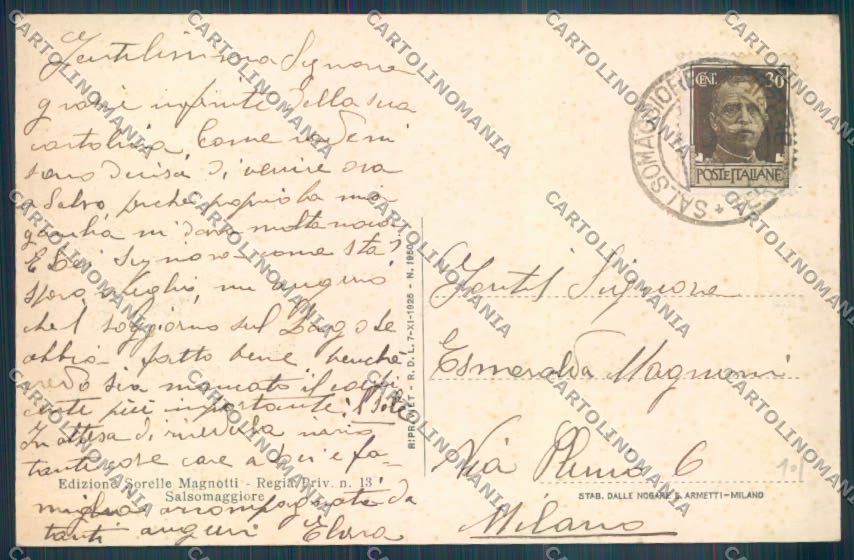 Gentilissima Signora
grazie infinite della sua
cartolina. Come vede mi
sono decisa di venire ora
a Salso, perché proprio la mia
mi dava molta noia.
E Lei Signora come sta?
spero meglio, mi auguro
che il soggiorno sul Lago Le
abbia fatto bene benchè
credo sia mancato il
più importante: il Sole
In attesa di rivederla invio
tante cose care a Lei e fa-
miglia accompagnate da
tanti auguri Elvira
Edizione Sorelle Magnotti - Regia Priv. n. 13
Salsomaggiore
RIPR. VIET - R. D. L. 7-XI-1925 - N. 1950
CENT. 30
POSTE ITALIANE
SALSOMAGGIORE
Gentil Signora
Esmeralda Magnoni
Via 6
Milano
STAB. DALLE NOGARE E ARMETTI - MILANO
CARTOLINOMANIA